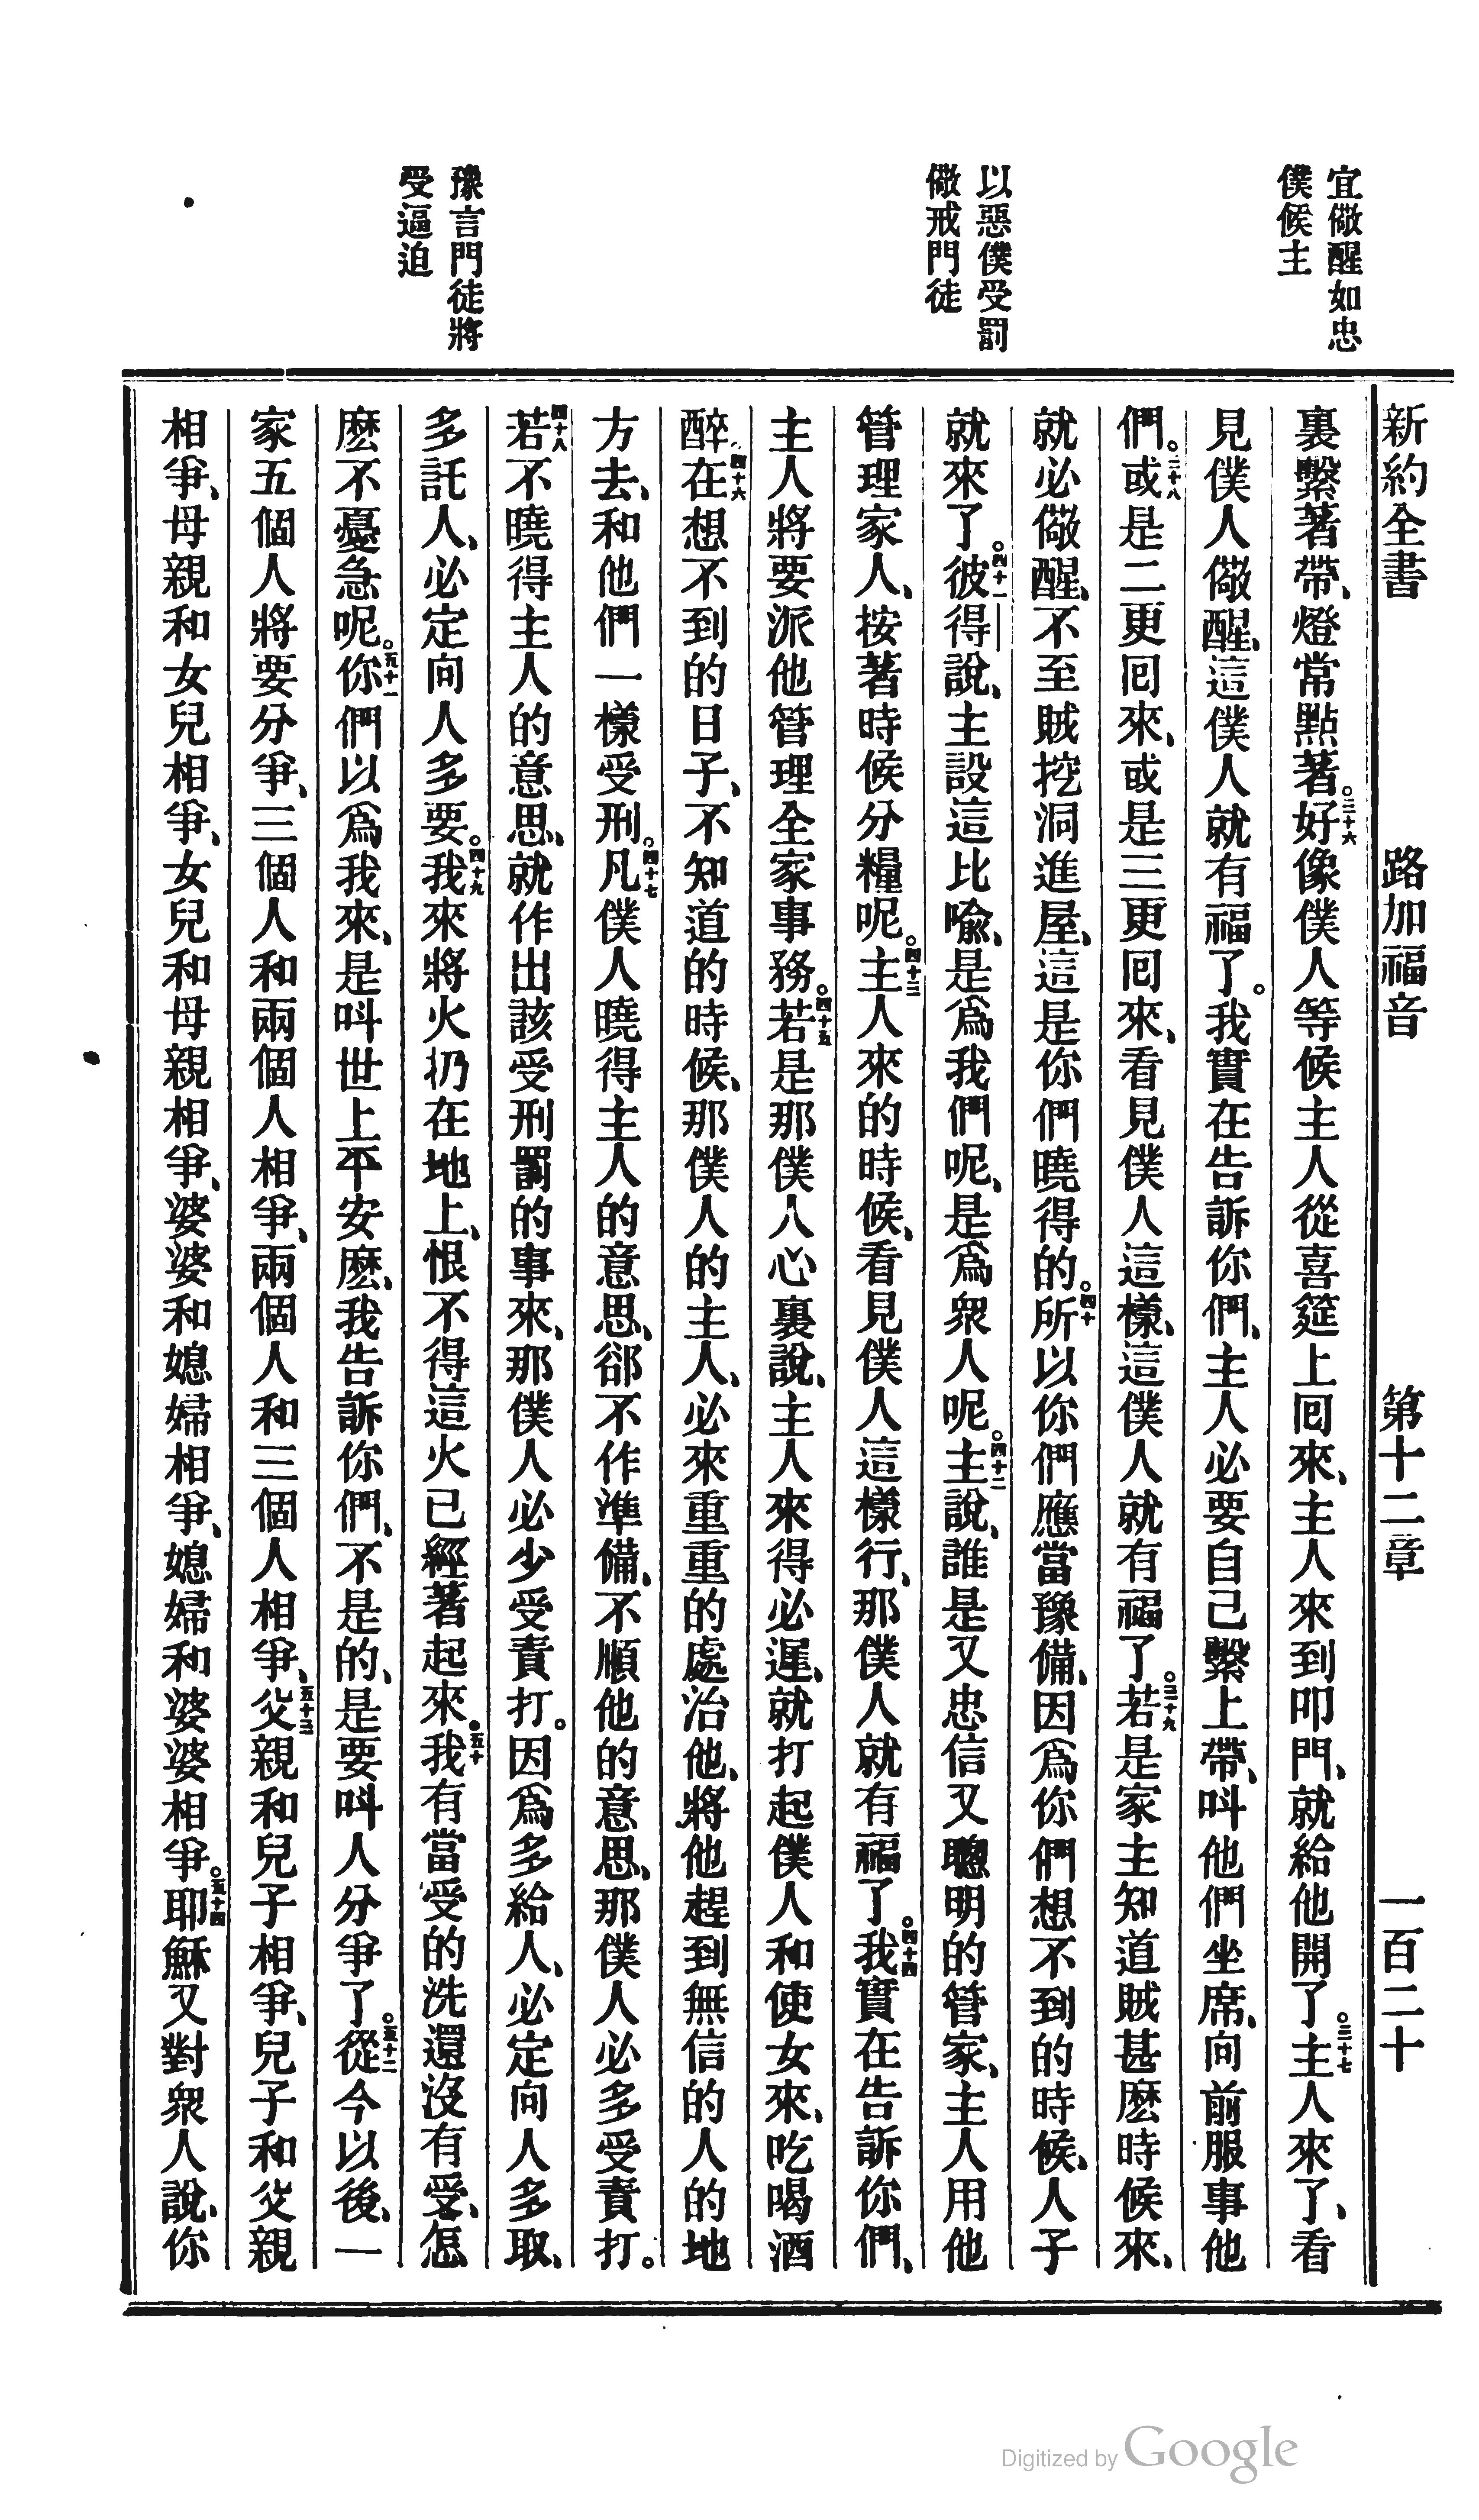 新約全書　路加福音　第十二章　一百二十
宜儆醒如忠
僕候主
以惡僕受罰
儆戒門徒
豫言門徒將
受逼迫
裏繫著帶、燈常點著。三十六好像僕人等候主人從喜筵上囘來、主人來到叩門、就給他開了。三十七主人來了、看
見僕人儆醒、這僕人就有福了。我實在告訴你們、主人必要自己繫上帶、呌他們坐席、向前服事他
們。三十八或是二更囘來、或是三更囘來、看見僕人這樣、這僕人就有福了。三十九若是家主知道賊甚麽時候來、
就必儆醒、不至賊挖洞進屋、這是你們曉得的。四十所以你們應當豫備、因爲你們想不到的時候、人子
就來了。四十一彼得說、主設這比喻、是爲我們呢、是爲衆人呢。四十二主說、誰是又忠信又聰明的管家、主人用他
管理家人、按著時候分糧呢。四十三主人來的時候、看見僕人這樣行、那僕人就有福了。四十四我實在告訴你們、
主人將要派他管理全家事務。四十五若是那僕人心裏說、主人來得必遲、就打起僕人和使女來、吃喝酒
醉、四十六在想不到的日子、不知道的時候、那僕人的主人、必來重重的處治他、將他趕到無信的人的地
方去、和他們一樣受刑。四十七凡僕人曉得主人的意思、郤不作準備、不順他的意思、那僕人必多受責打。
四十八若不曉得主人的意思、就作出該受刑罰的事來、那僕人必少受責打。因爲多給人、必定向人多取、
多託人、必定向人多要。四十九我來將火扔在地上、恨不得這火已經著起來。五十我有當受的洗還沒有受、怎
麽不憂急呢。五十一你們以爲我來、是呌世上平安麽、我告訴你們、不是的、是要呌人分爭了。五十二從今以後、一
家五個人將要分爭、三個人和兩個人相爭、兩個人和三個人相爭、五十三父親和兒子相爭、兒子和父親
相爭、母親和女兒相爭、女兒和母親相爭、婆婆和媳婦相爭、媳婦和婆婆相爭。五十四耶穌又對衆人說、你
Digitized by Google